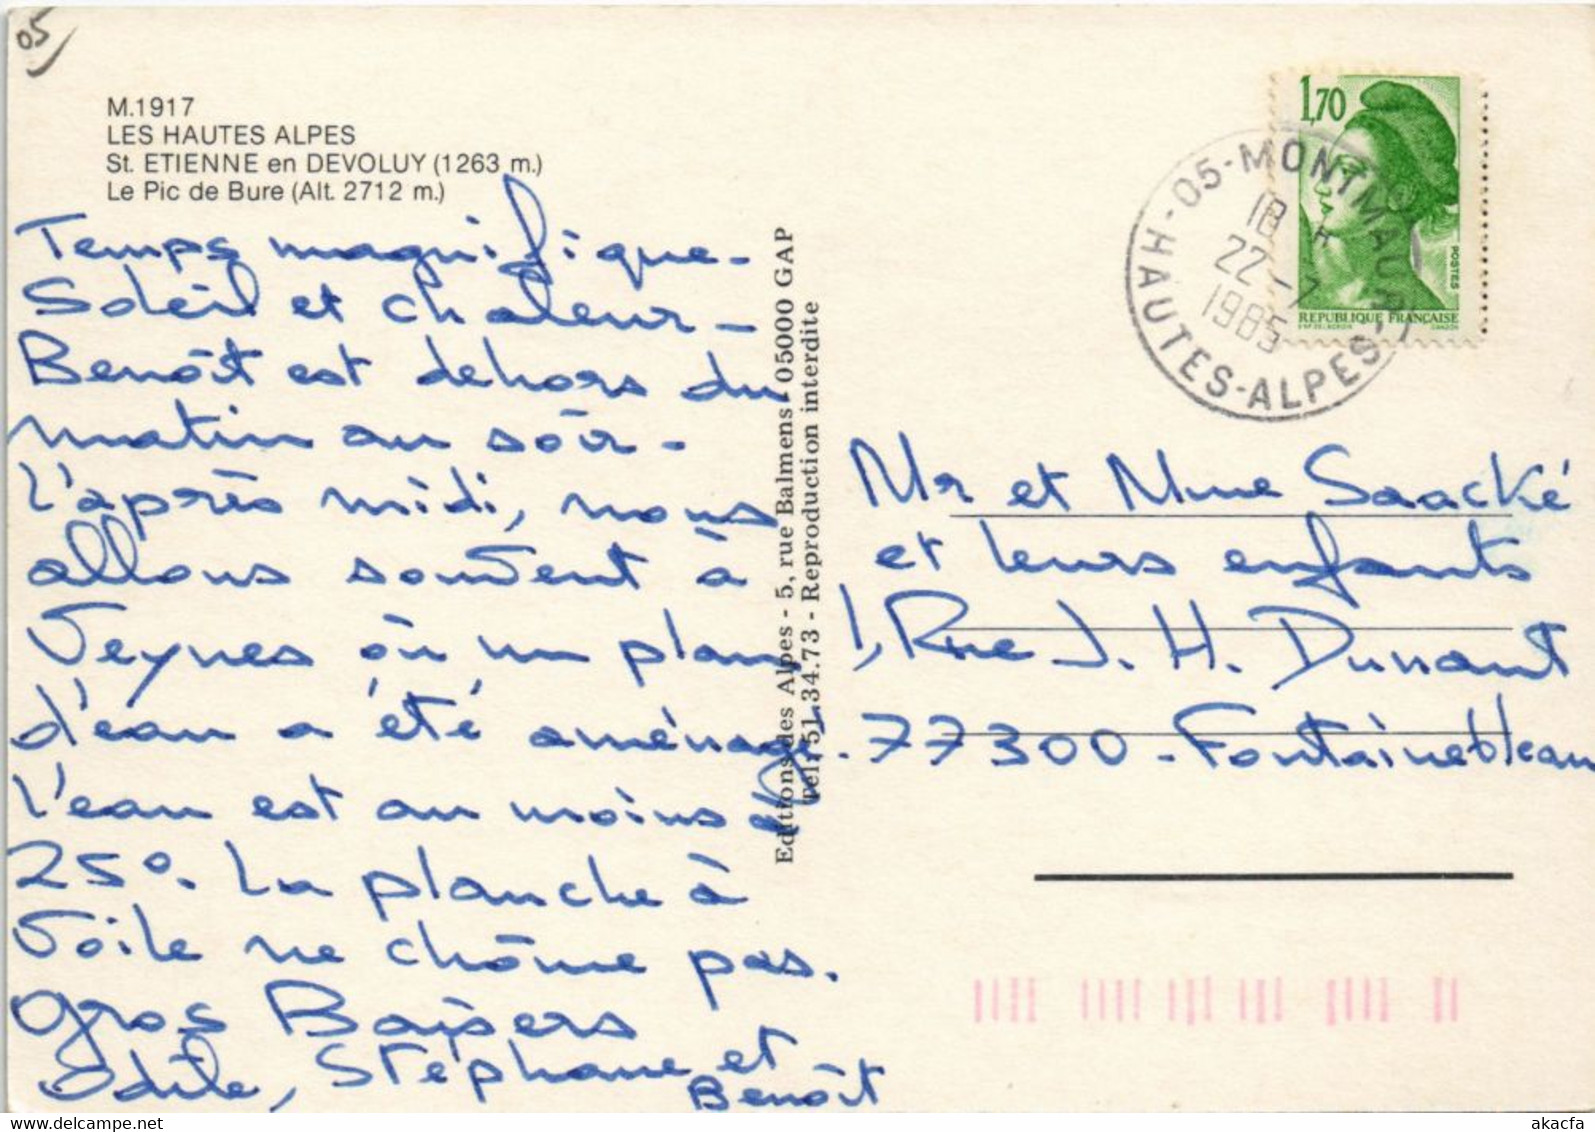 05
M.1917
LES HAUTES ALPES
St. ETIENNE en DEVOLUY (1263 m.)
Le Pic de Bure (Alt. 2712 m.)
Temps magnifique -
Soleil et chaleur -
Benoît est dehors du
matin au soir -
L'après midi, nous
allons souvent à
Veynes où un plan
d'eau a été aménagé.
L'eau est au moins à
25°. La planche à
voile ne chôme pas.
Gros Baisers
Odile, Stéphane et
Benoît
Editions des Alpes - 5, rue Balmens - 05000 GAP
Tel. 51.34.73 - Reproduction interdite
1,70
POSTES
REPUBLIQUE FRANÇAISE
05-MONTMAUR
18 H
22 - 7
1985
HAUTES-ALPES
Mr et Mme Saacké
et leurs enfants
1, Rue J. H. Dunant
77300 - Fontainebleau
akacfa